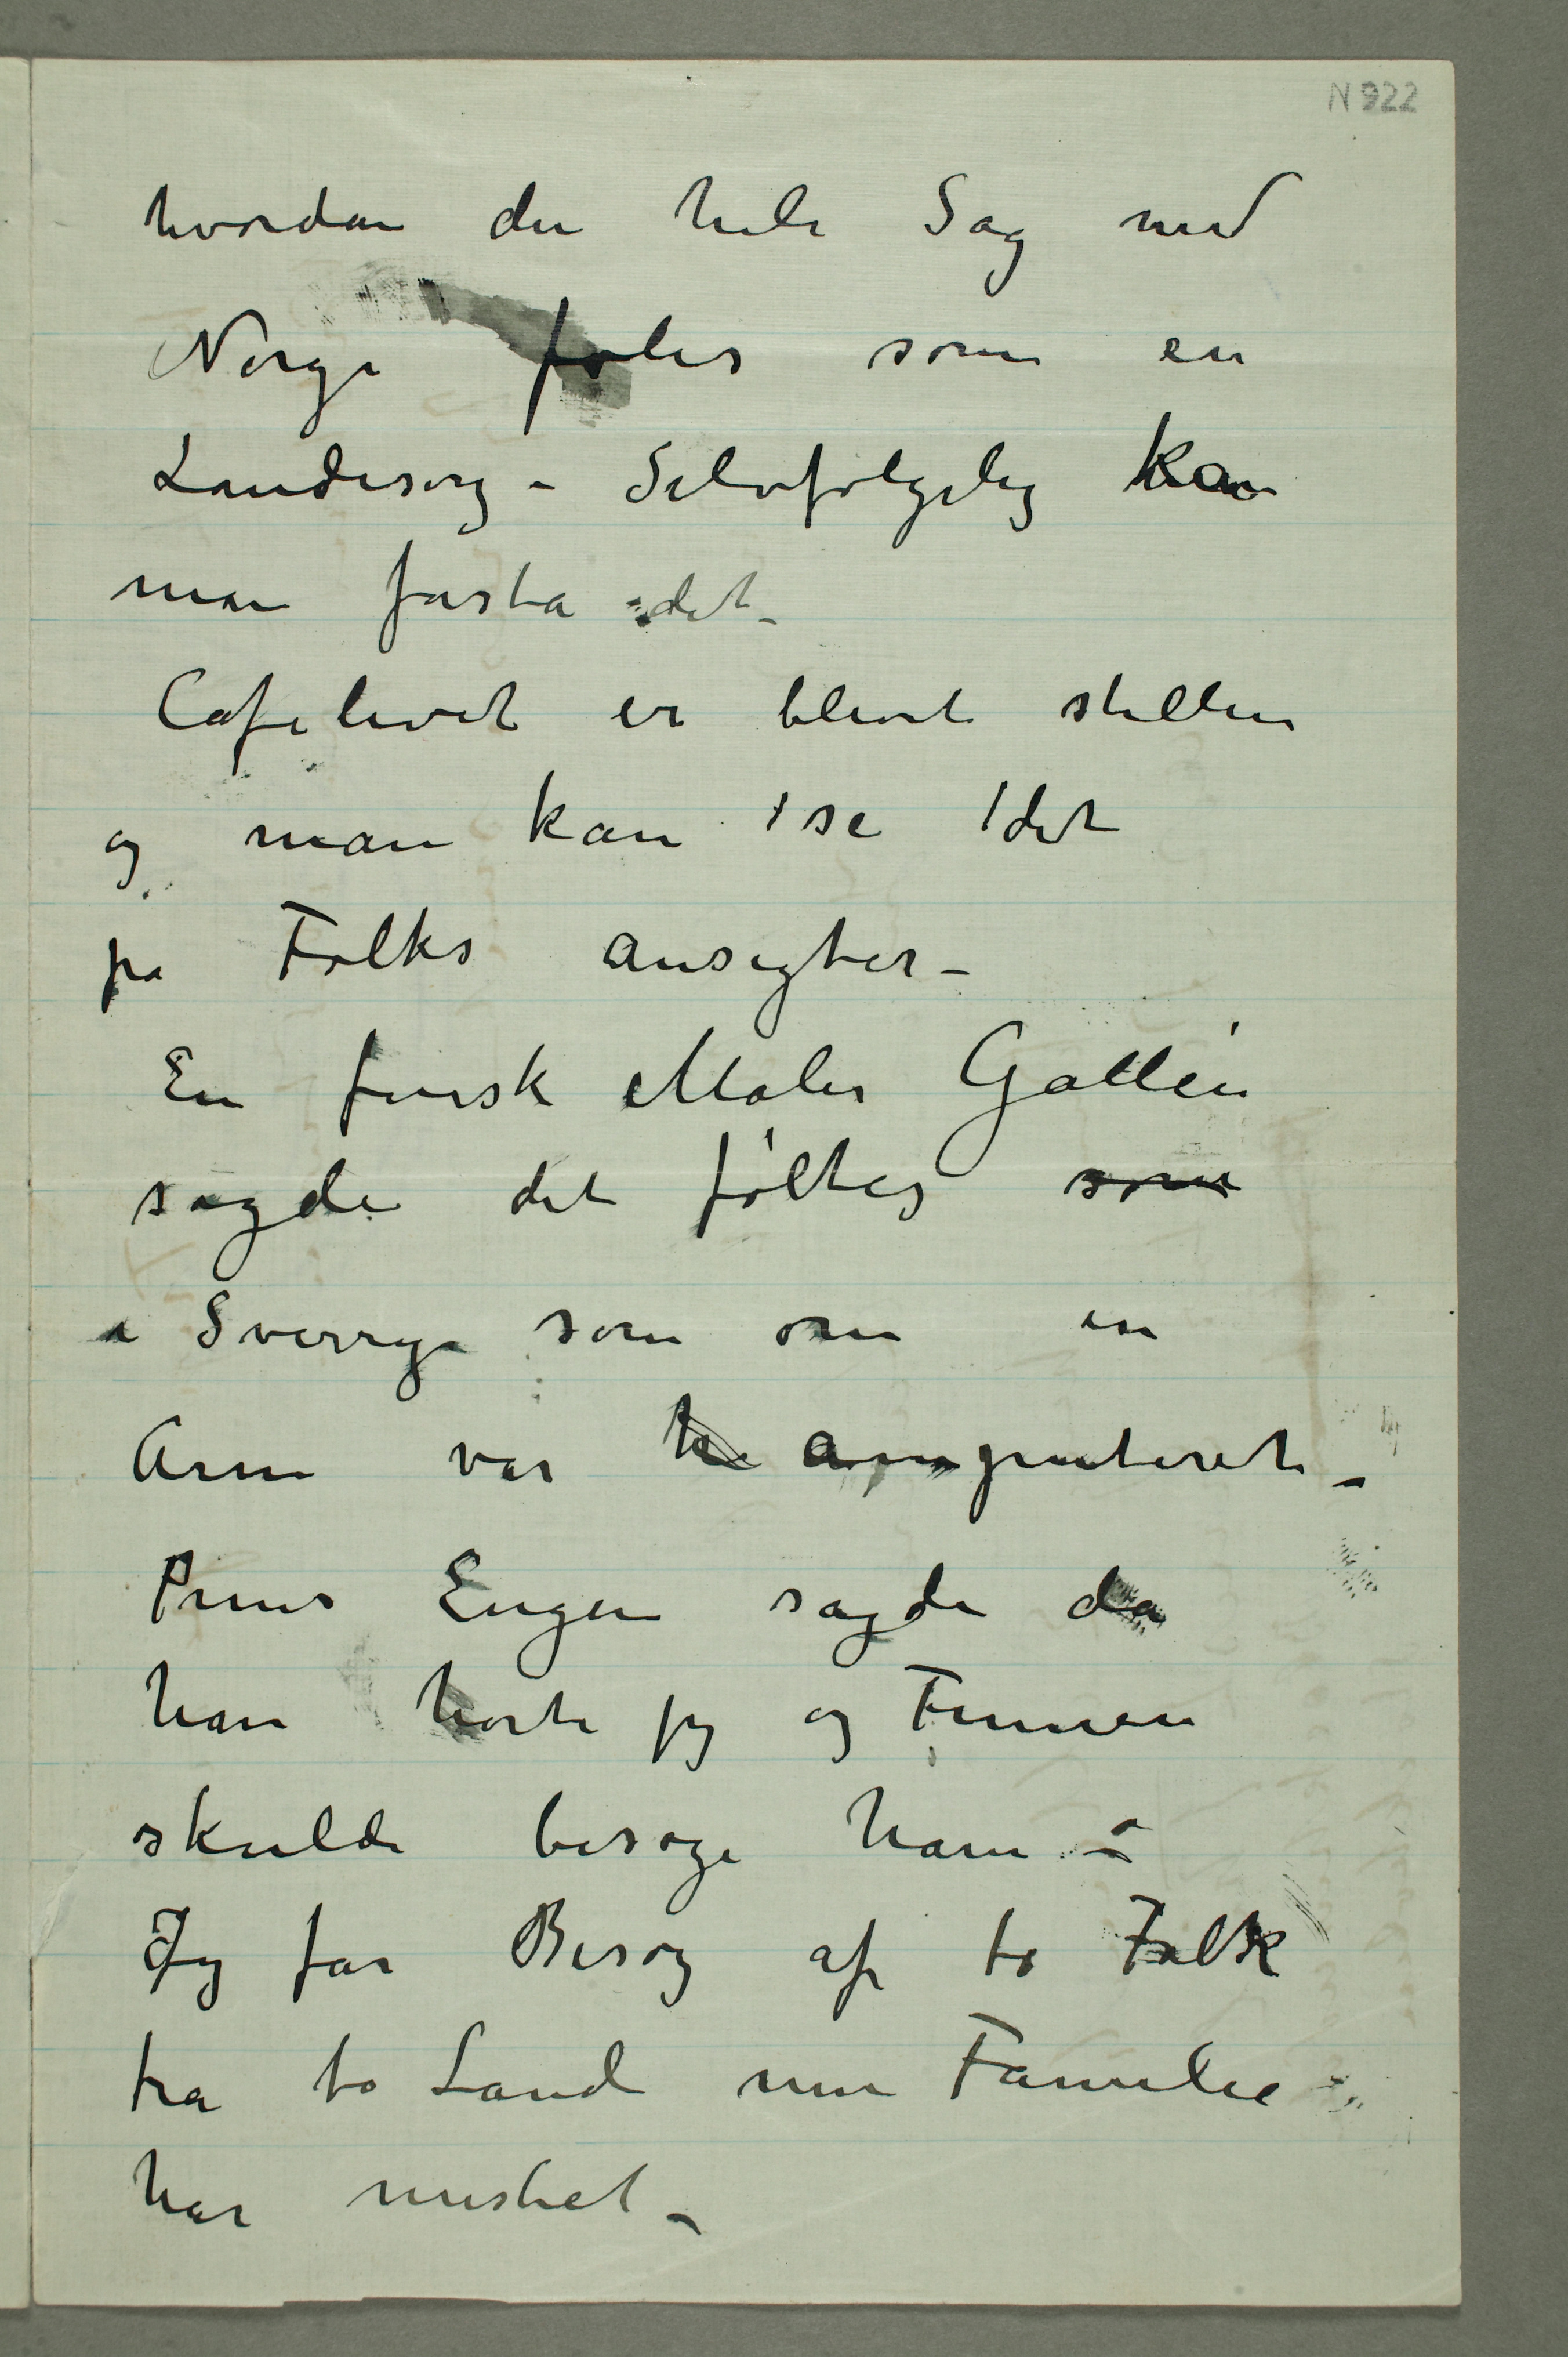 N 922
hvordan den hele Sag med
Norge føles som en
Landesorg – Selvfølgelig kan
man forstå det –
Cafelivet er blevet stillere
og man kan se det
på Folks ansigter –
En finsk Maler Gallén
sagde det føltes som
i Sverrige som om en
Arm var amputeret –
Prins Eugen sagde da
han hørte jeg og Finnen
skulde besøge ham –
Jeg får Besøg af to Folk
fra to Land min Familie
har mistet –